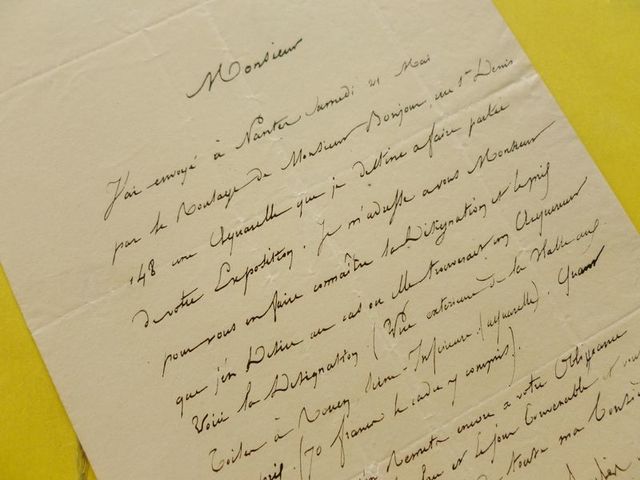 Monsieur
J'ai envoyé à Nantes Samedi 21 Mai
par le Roulage de Monsieur Bonjour, rue St Denis
148 une Aquarelle que je destine a faire partie
de votre Exposition. Je m'adresse a vous Monsieur
pour vous en faire connaître la Désignation et le prix
que j'en Desire au cas ou elle trouverait un Acquereur
Voici la Désignation (Vue exterieure de la Halle aux
Toiles à Rouen Seine-Inférieure (aquarelle). Quant
(70 francs le cadre y compris).
Remets encore a votre Obligeance
et le jour Convenable et
toute ma